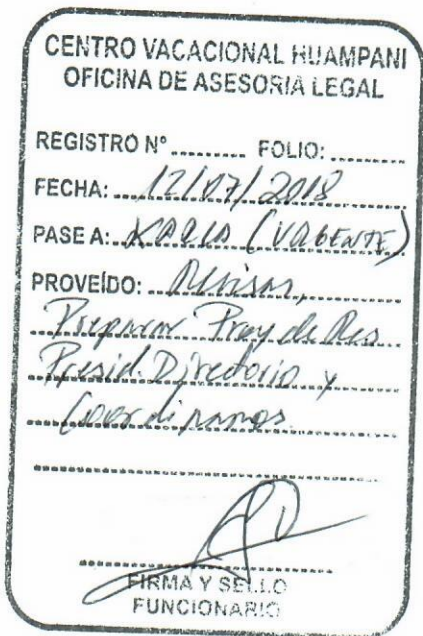 CENTRO VACACIONAL HUAMPANI
OFICINA DE ASESORIA LEGAL
REGISTRO N° ......... FOLIO: .........
FECHA: 12/07/2018
PASE A: KARLA (URGENTE)
PROVEÍDO: Revisar,
Preparar Proy de Res
Presid. Directorio y
Coordinamos.
FIRMA Y SELLO
FUNCIONARIO